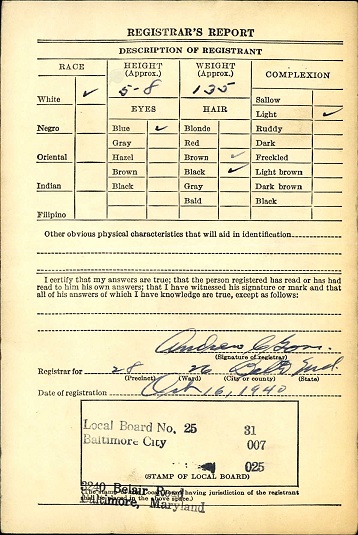 REGISTRAR'S REPORT
DESCRIPTION OF REGISTRANT
RACE HEIGHT (Approx.) WEIGHT (Approx.) COMPLEXION
5-8 135
White ✓ Sallow
EYES HAIR Light ✓
Negro Blue ✓ Blonde Ruddy
Gray Red Dark
Oriental Hazel Brown ✓ Freckled
Brown Black ✓ Light brown
Indian Black Gray Dark brown
Bald Black
Filipino
Other obvious physical characteristics that will aid in identification
I certify that my answers are true; that the person registered has read or has had
read to him his own answers; that I have witnessed his signature or mark and that
all of his answers of which I have knowledge are true, except as follows:
Andrew
(Signature of registrar)
Registrar for 28 26 Balto Md.
(Precinct) (Ward) (City or county) (State)
Date of registration Oct 16, 1940
Local Board No. 25 31
Baltimore City 007
025
(STAMP OF LOCAL BOARD)
3240 Belair Road
(The stamp of the Local Board having jurisdiction of the registrant
shall be placed in the above space.)
Baltimore, Maryland